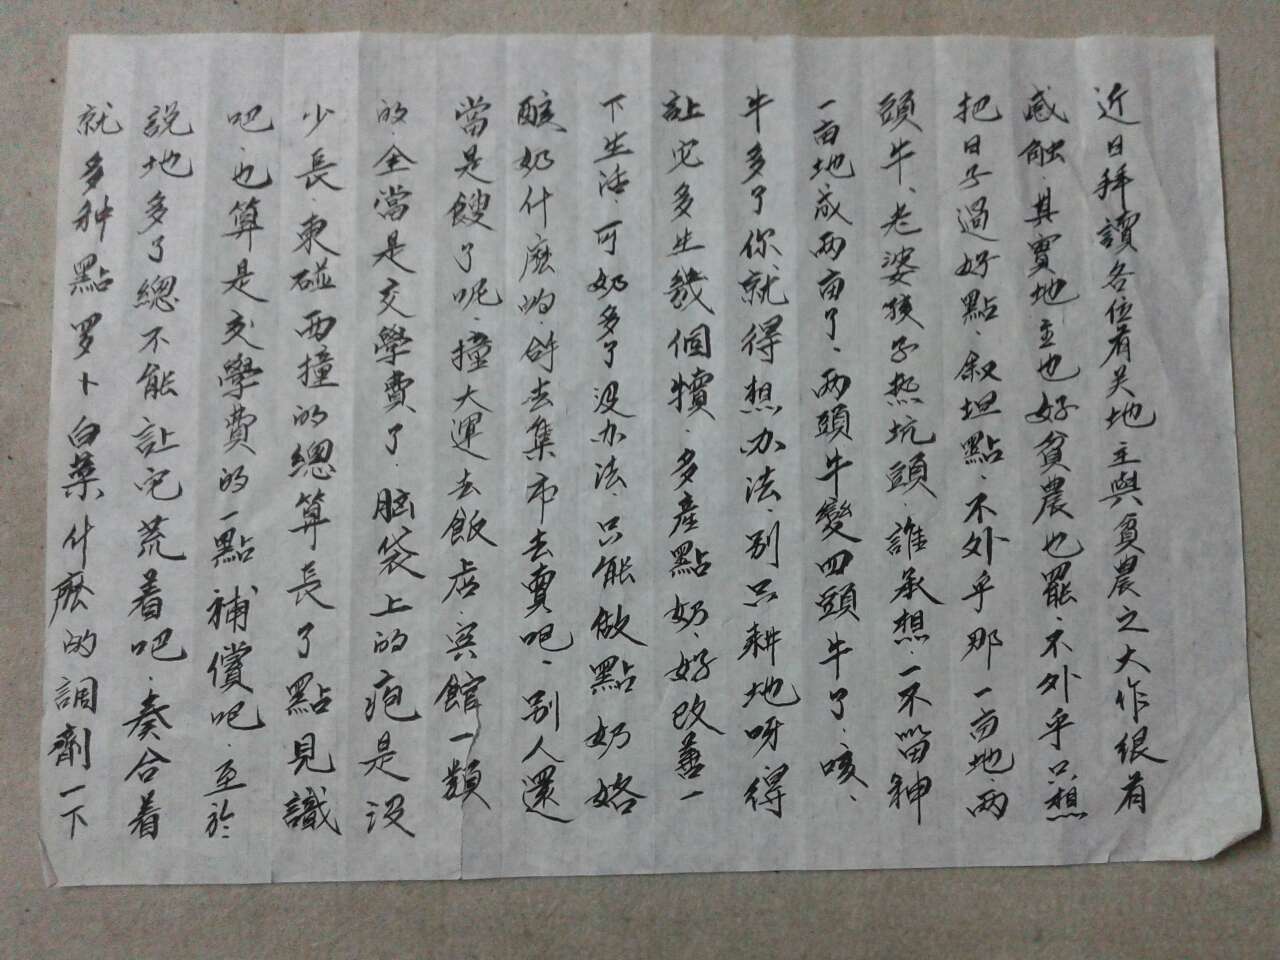 近日拜讀各位有关地主與貧農之大作很有
感触.其實地主也好貧農也罷.不外乎只想
把日子過好點.叙坦點.不外乎那一亩地两
頭牛、老婆孩子热坑頭.誰承想.一不留神
一亩地成两亩了、两頭牛變四頭牛了.咳、
牛多了你就得想办法.别只耕地呀得
註它多生幾個犢.多產點奶.好改善一
下生活.可奶多了没办法.只能做點奶酪
酸奶什麽的.給去集市去賣吧、别人還
當是餿了呢.撞大運去飯店.宾館一類
的.全當是交學費了.脑袋上的疱是没
少長.東碰西撞的總算長了點見識
吧.也算是交學費的一點補償吧.至於
説地多了總不能註它荒着吧.奏合着
就多种點罗卜白菜什麽的調劑一下